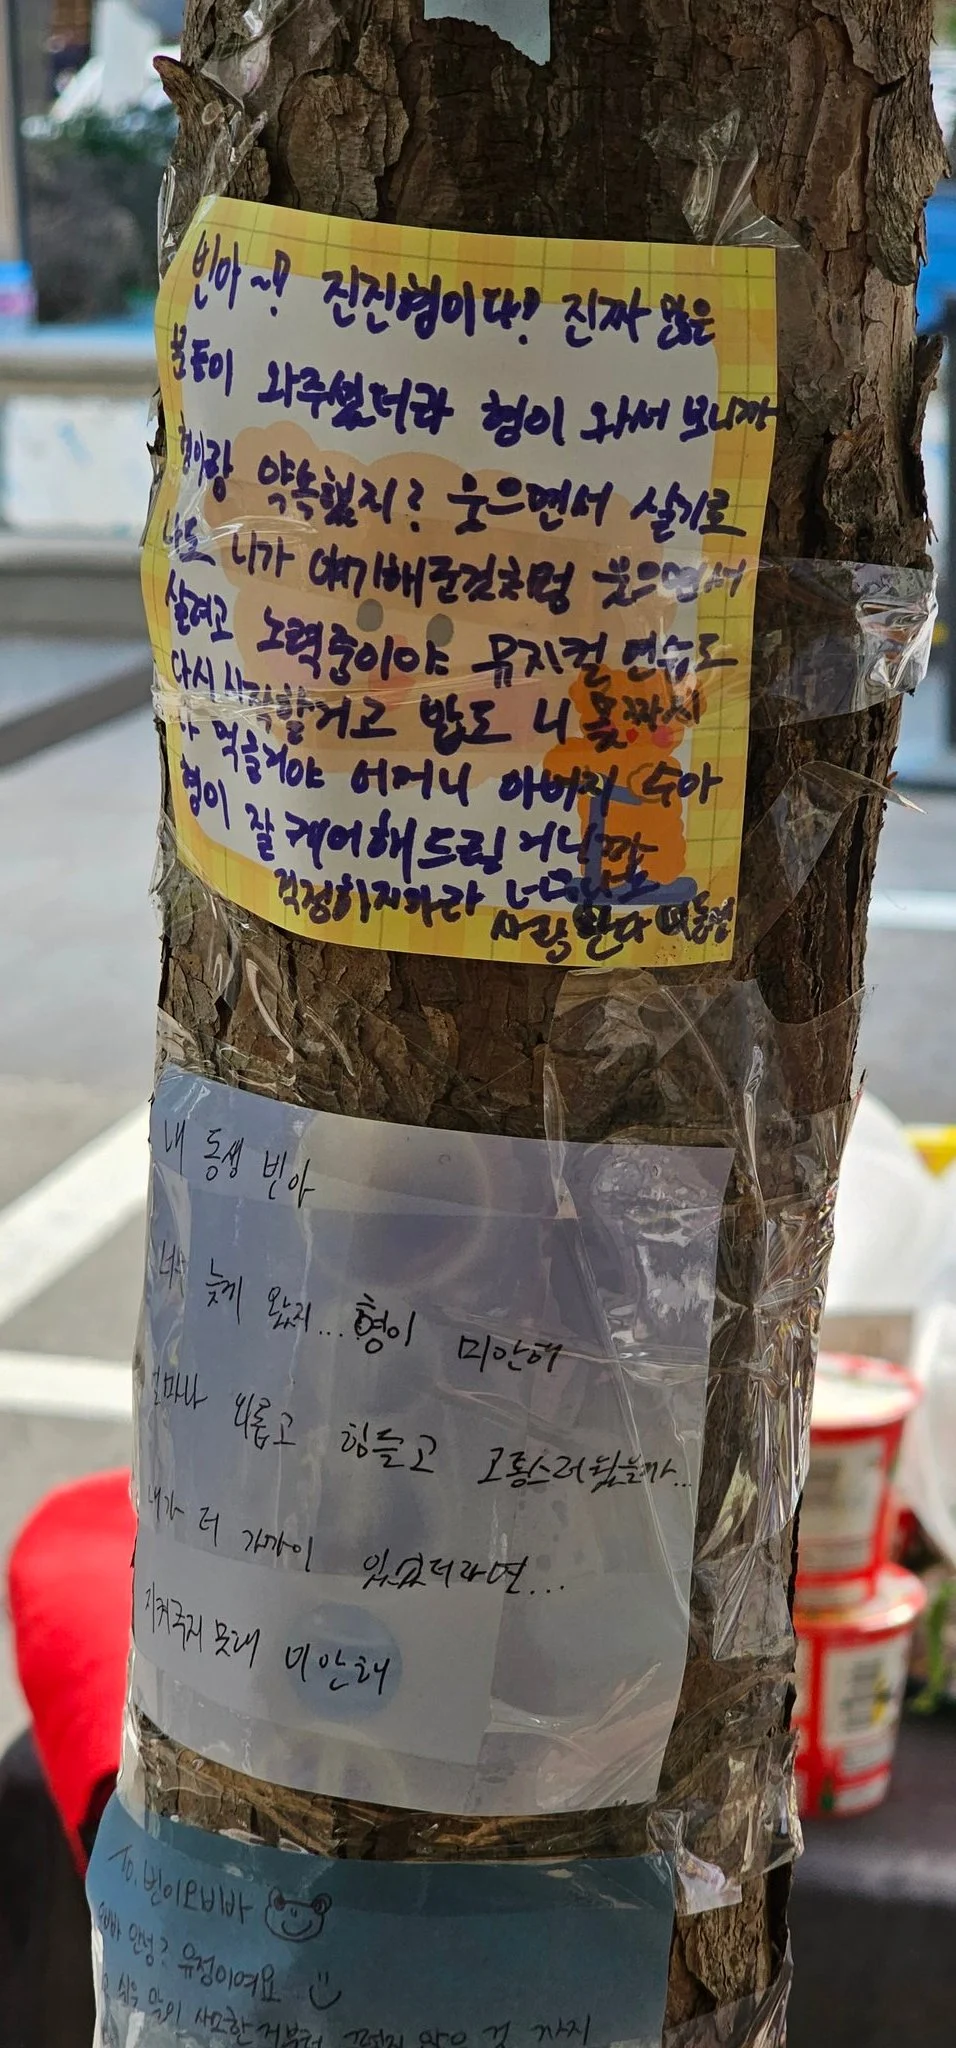 빈아~! 진진형이다! 진짜 많은
분들이 와주셨더라 형이 와서 보니까
형아랑 약속했지? 웃으면서 살기로
나도 니가 얘기해준것처럼 웃으면서
살려고 노력중이야 뮤지컬 연습도
다시 시작할거고 밥도 니 몫까지
다 먹을거야 어머니 아버지 수아
형이 잘 케어해드릴거니까
걱정하지마라
사랑한다
내 동생 빈아
너무 늦게 왔지... 형이 미안해
얼마나 외롭고 힘들고 고통스러웠을까...
내가 더 가까이 있었더라면...
지켜주지 못해 미안해
To. 빈이오빠
오빠 안녕? 유정이에요
쉬운 말의 사소한 거부터 그렇지 않은 것 까지